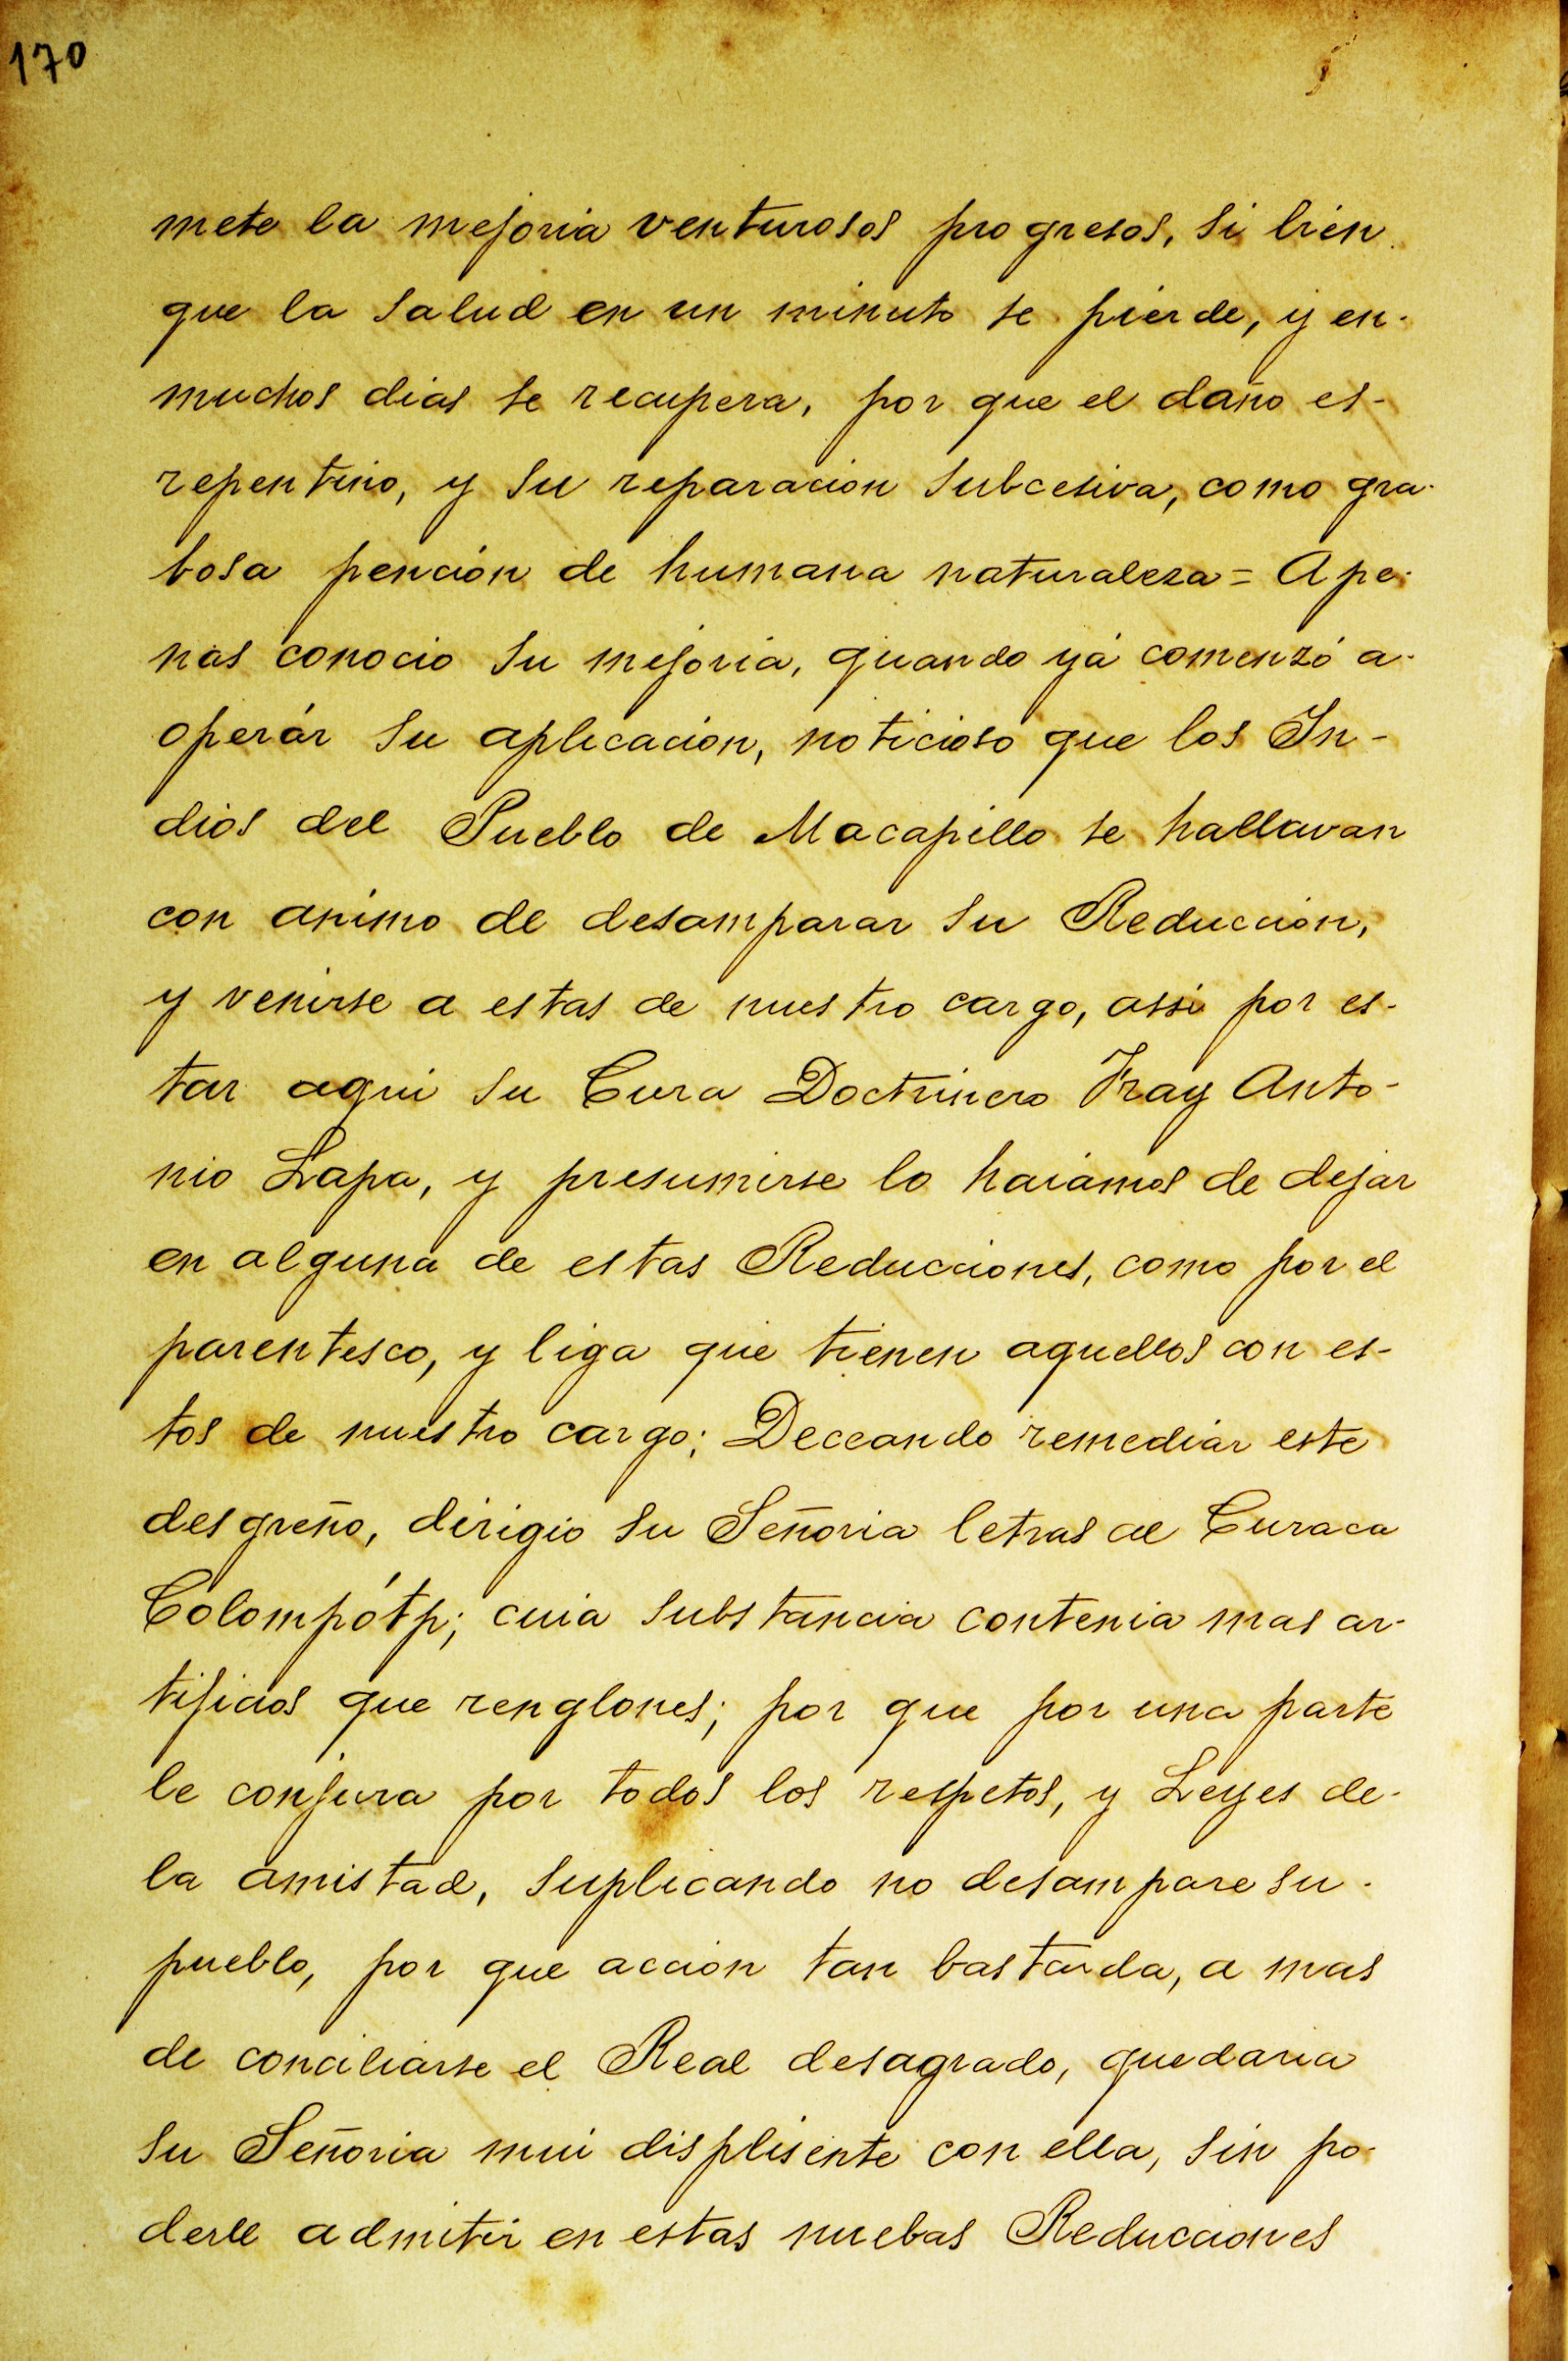 170
mete la mejoria venturosos progresos, si bien
que la salud en un minuto se pierde, y en-
muchos dias se recupera, por que el daño es-
repentino, y su reparacion subcesiva, como gra-
bosa pención de humana naturaleza = Ape-
nas conocio su mejoria, quando yá comenzó a-
operár su aplicacion, noticioso que los In-
dios del Pueblo de Macapillo se hallavan
con animo de desamparar su Reduccion,
y venirse a estas de nuestro cargo, assi por es-
tar aqui su Cura Doctrinero Fray Anto-
nio Lapa, y presumirse lo haiamos de dejar
en alguna de estas Reducciones, como por el
parentesco, y liga que tienen aquellos con es-
tos de nuestro cargo; Deceando remediar este
desgreño, dirigio su Señoria letras al Curaca
Colompótp; cuia substancia contenia mas ar-
tificios que renglones; por que por una parte
le conjura por todos los respetos, y Leyes de-
la amistad, suplicando no desampare su-
pueblo, por que accion tan bastarda, a mas
de conciliarse el Real desagrado, quedaria
su Señoria mui displisente con ella, sin po-
derle admitir en estas nuebas Reducciones